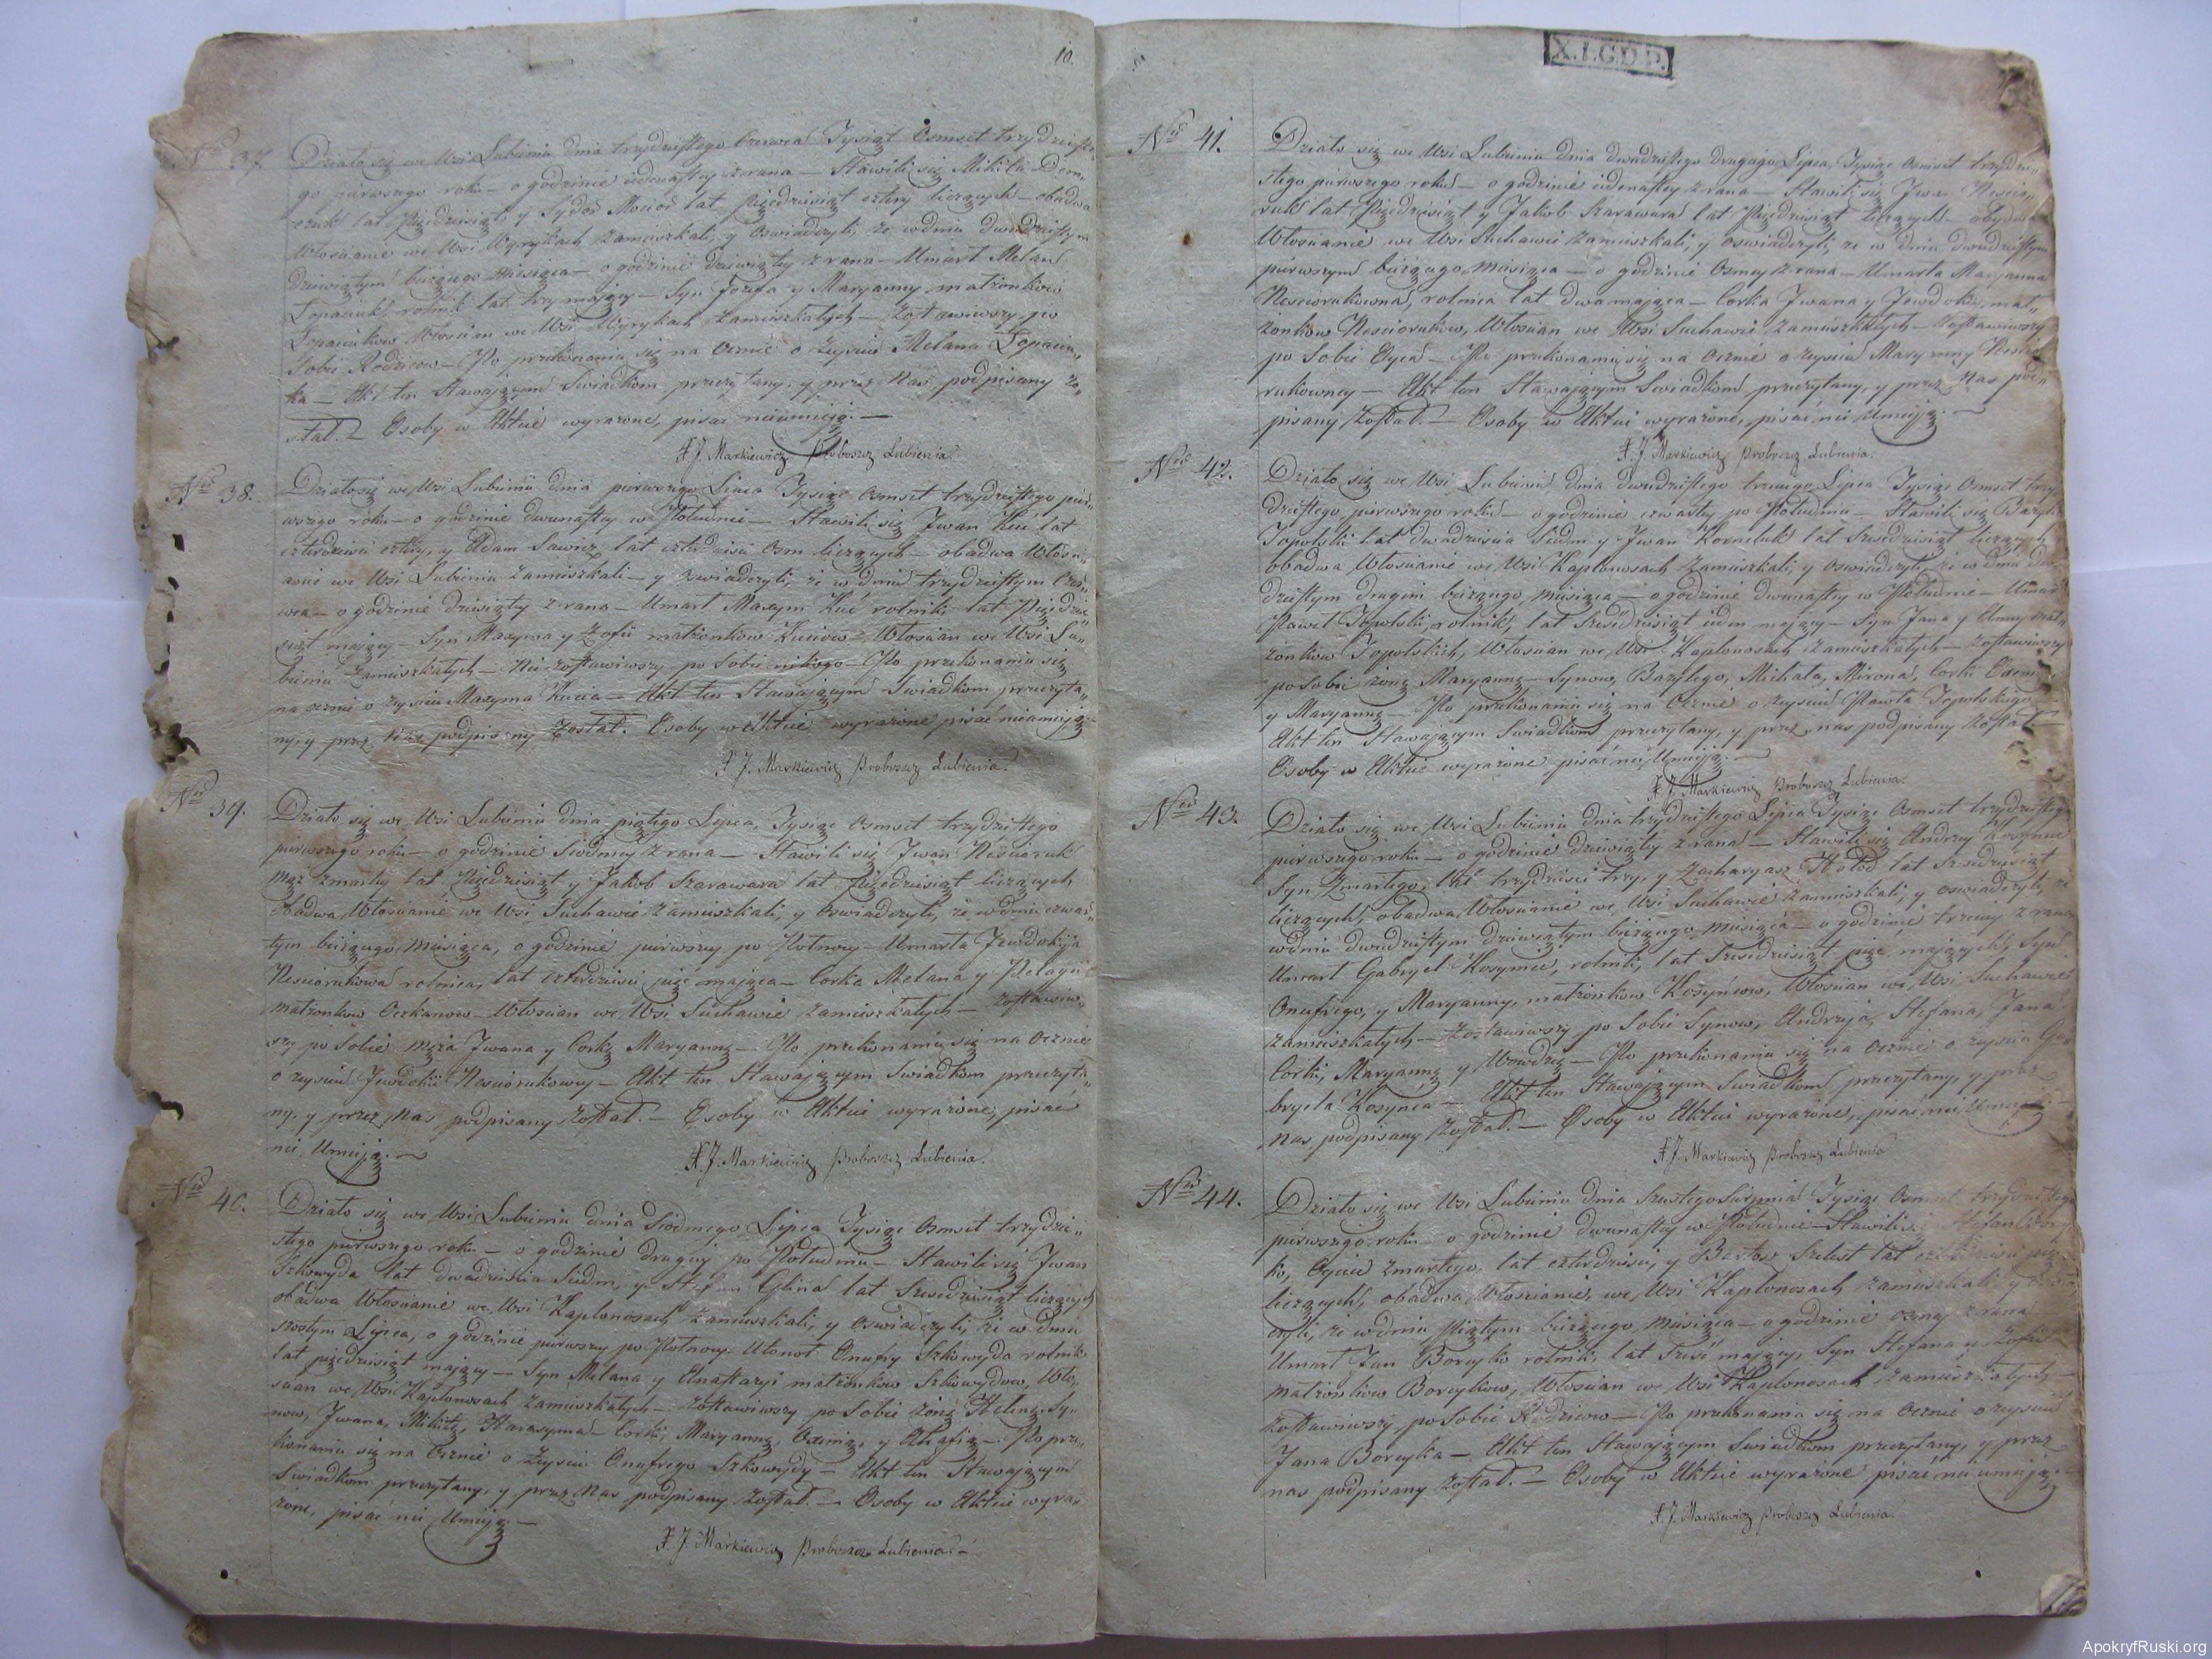 10.
Nro 37. Działo się we Wsi Lubieniu dnia trzydzistego Czerwca Tysiąc Osmset trzydziste„
go pierwszego roku — o godzinie iedenastey z rana — Stawili się Mikita Dem„
czuk lat Pięcdziesiąt, y Sydor Mocior lat pięcdziesiąt cztery liczących — obadwa
Włościanie we Wsi Wyrykach zamieszkali, y oswiadczyli, że w dniu dwudzistym
Dziewiątym bieżącego Miesiąca — o godzinie dziewiątey z rana — Umarł Melan
Łopaciuk, rolnik lat trzy maiący — Syn Jozefa y Maryanny małżonkow
Łopaciukow Włościan we Wsi Wyrykach zamieszkałych — zostawiwszy po
Sobie Rodzicow — Po przekonaniu się na Ocznie o Zeysciu Melana Łopaciu„
ka — Akt ten Stawaiącym Swiadkom przeczytany, y przez Nas podpisany zo„
stał. — Osoby w Akcie wyrażone, pisac nieumieią. —
X. J. Markiewicz Proboszcz Lubienia.
Nro 38. Działo się we Wsi Lubieniu dnia pierwszego Lipca Tysiąc Osmset trzydzistego pier„
wszego roku — o godzinie dwunastey w Południe — Stawili się Jwan Kuć lat
czterdzieści cztery, y Adam Sawicz lat czterdzieści Osm liczących — obadwa Włości„
anie we Wsi Lubieniu zamieszkali — y oswiadczyli, że w dniu trzydzistym Czer„
wca — o godzinie dziewiątey z rana — Umarł Maxym Kuć rolnik lat Pięcdzie„
siąt maiący — Syn Maxyma y Zofii małżonkow Kuciow — Włościan we Wsi Lu„
bieniu zamieszkałych — Nie zostawiwszy po Sobie nikogo — Po przekonaniu się
na ocznie o zeysciu Maxyma Kucia — Akt ten Stawaiącym Swiadkom przeczyta„
ny, y przez Nas podpisany został. Osoby w Akcie wyrażone pisać nieumieią.
X. J. Markiewicz Proboszcz Lubienia.
Nro 39. Działo się we Wsi Lubieniu dnia piątego Lipca, Tysiąc Osmset trzydzistego
pierwszego roku — o godzinie Siodmey z rana — Stawili się Jwan Nesciaruk
Mąż zmarłey lat Pięcdziesiąt y Jakob Szarawara lat Pięcdziesiąt liczących
Obadwa Włościanie we Wsi Suchawie zamieszkali, y Oswiadczyli, że w dniu czwar„
tym bieżącego Miesiąca, o godzinie pierwszey po Połnocy — Umarła Jewdokija
Nesciorukowa rolnica, lat czterdzieści pięć maiąca — Corka Melana y Pelagii
małżonkow Oczkanow — Włościan we Wsi Suchawie zamieszkałych — zostawiw„
szy po Sobie Męża Jwana y Corkę Maryannę — Po przekonaniu się na Ocznie
o zeysciu Jewdokii Nesciorukowey — Akt ten Stawaiącym Swiadkom przeczyta„
ny, y przez Nas podpisany został. — Osoby w Akcie wyrażone, pisać
nie Umieią. —
X. J. Markiewicz Proboszcz Lubienia.
Nro 40. Działo się we Wsi Lubieniu dnia Siodmego Lipca Tysiąc Osmset trzydzie„
stego pierwszego roku — o godzinie drugiey po Południu — Stawili się Jwan
Szkowyda lat dwadzieścia Siedm, y Stefan Glina lat Szescdziesiąt liczących
obadwa Włościanie we Wsi Kaplonosach zamieszkali, y Oswiadczyli, że w dniu
szostym Lipca, o godzinie pierwszey po Połnocy Utonoł Onufry Szkowyda rolnik
lat pięcdziesiąt maiący — Syn Melana y Anastazyi małżonkow Szkowydow, Wło„
scian we Wsi Kaplonosach zamieszkałych — zostawiwszy po Sobie żonę Helenę, Sy„
now, Jwana, Mikitę, Harasyma — Corki, Maryannę, Oxenię, y Ahafię — Po prze„
konaniu się na Ocznie o Zeysciu Onufrego Szkowydy — Akt ten Stawaiącym
Swiadkom przeczytany, y przez Nas podpisany został. — Osoby w Akcie wyra„
żone, pisać nie Umieią. —
X. J. Markiewicz Proboszcz Lubienia. —
X.L.G.D.P.
Nro 41. Działo się we Wsi Lubieniu dnia dwudzistego drugiego Lipca, Tysiąc Osmset trzydzie„
stego pierwszego roku — o godzinie iedenastey z rana — Stawili się Jwan Nescio„
ruk lat Pięcdziesiąt y Jakob Szarawara lat Pięcdziesiąt liczących — obydwa
Włościanie we Wsi Suchawie zamieszkali, y oswiadczyli, że w dniu dwudzistym
pierwszym bieżącego Miesiąca — o godzinie Osmey z rana — Umarła Maryanna
Nesciorukowna, rolnica lat dwa maiąca — Corka Jwana y Jewdokii, mał„
żonkow Nesciorukow, Włościan we Wsi Suchawie zamieszkałych — zostawiwszy
po Sobie Oyca — Po przekonaniu się na Ocznie o zeysciu Maryanny Nescio„
rukowney — Akt ten Stawaiącym Swiadkom przeczytany, y przez Nas pod„
pisany został. — Osoby w Akcie wyrażone, pisać nie Umieią. —
X. J. Markiewicz Proboszcz Lubienia.
Nro 42. Działo się we Wsi Lubieniu dnia dwudzistego trzeciego Lipca Tysiąc Osmset trzy„
dzistego pierwszego roku — o godzinie czwartey po Południu — Stawili się Bazyli
Topolski lat dwadzieścia Siedm y Jwan Korneluk lat Szescdziesiąt liczących
obadwa Włościanie we Wsi Kaplonosach zamieszkali, y oswiadczyli, że w dniu dwu
dzistym drugim bieżącego Miesiąca — o godzinie dwunastey w Południe — Umarł
Paweł Topolski, rolnik, lat Szescdziesiąt iedem maiący — Syn Jana y Anny mał„
żonkow Topolskich, Włościan we Wsi Kaplonosach zamieszkałych — zostawiwszy
po Sobie żonę Maryannę — Synow, Bazylego, Michała, Mirona, Corki
y Maryannę — Po przekonaniu się na Ocznie o zeysciu Pawła Topolskiego
Akt ten Stawaiącym Swiadkom przeczytany, y przez nas podpisany został
Osoby w Akcie wyrażone pisać nie Umieią. —
X. J. Markiewicz Proboszcz Lubienia.
Nro 43. Działo się we Wsi Lubieniu dnia trzydzistego Lipca Tysiąc Osmset trzydzistego
pierwszego roku — o godzinie dziewiątey z rana — Stawili się Andrzey Kosyniec
Syn Zmarłego, lat trzydzieści trzy, y Zacharyasz Hołod lat Szescdziesiąt
liczących, obadwa Włościanie we Wsi Suchawie zamieszkali, y oswiadczyli, że
w dniu dwudzistym dziewiątym bieżącego Miesiąca — o godzinie trzeciey z rana
Umarł Gabryel Kosyniec, rolnik, lat Szescdziesiąt pięc maiących, Syn
Onufrego, y Maryanny, małżonkow Kosyńcow, Włościan we Wsi Suchawie
zamieszkałych — Zostawiwszy po Sobie Synow, Andrzeja, Stefana, Jana
Corki, Maryannę y — Po przekonaniu się na Ocznie o zeysciu Ga„
bryela Kosyńca — Akt ten Stawaiącym Swiadkom przeczytany, y przez
Nas podpisany został. — Osoby w Akcie wyrażone, pisać nie Umieią
X. J. Markiewicz Proboszcz Lubienia
Nro 44. Działo się we Wsi Lubieniu dnia Szustego Sierpnia Tysiąc Osmset trzydzistego
pierwszego roku — o godzinie dwunastey w Południe — Stawili się Stefan Borey„
ko, Oyciec zmarłego, lat czterdzieści, y Bartosz Szelest lat czterdzieści
liczących, obadwa Włościanie, we Wsi Kaplonosach zamieszkali y oswia
czyli, że w dniu Piątym bieżącego Miesiąca — o godzinie osmey z rana
Umarł Jan Boreyko rolnik, lat Sześć maiący, Syn Stefana y Zofii
małżonkow Boreykow, Włościan we Wsi Kaplonosach zamieszkałych —
zostawiwszy po Sobie Rodzicow — Po przekonaniu się na Ocznie o zeysciu
Jana Boreyka — Akt ten Stawaiącym Swiadkom przeczytany, y przez
nas podpisany został. — Osoby w Akcie wyrażone pisać nie umieią.
X. J. Markiewicz Proboszcz Lubienia.
ApokryfRuski.org